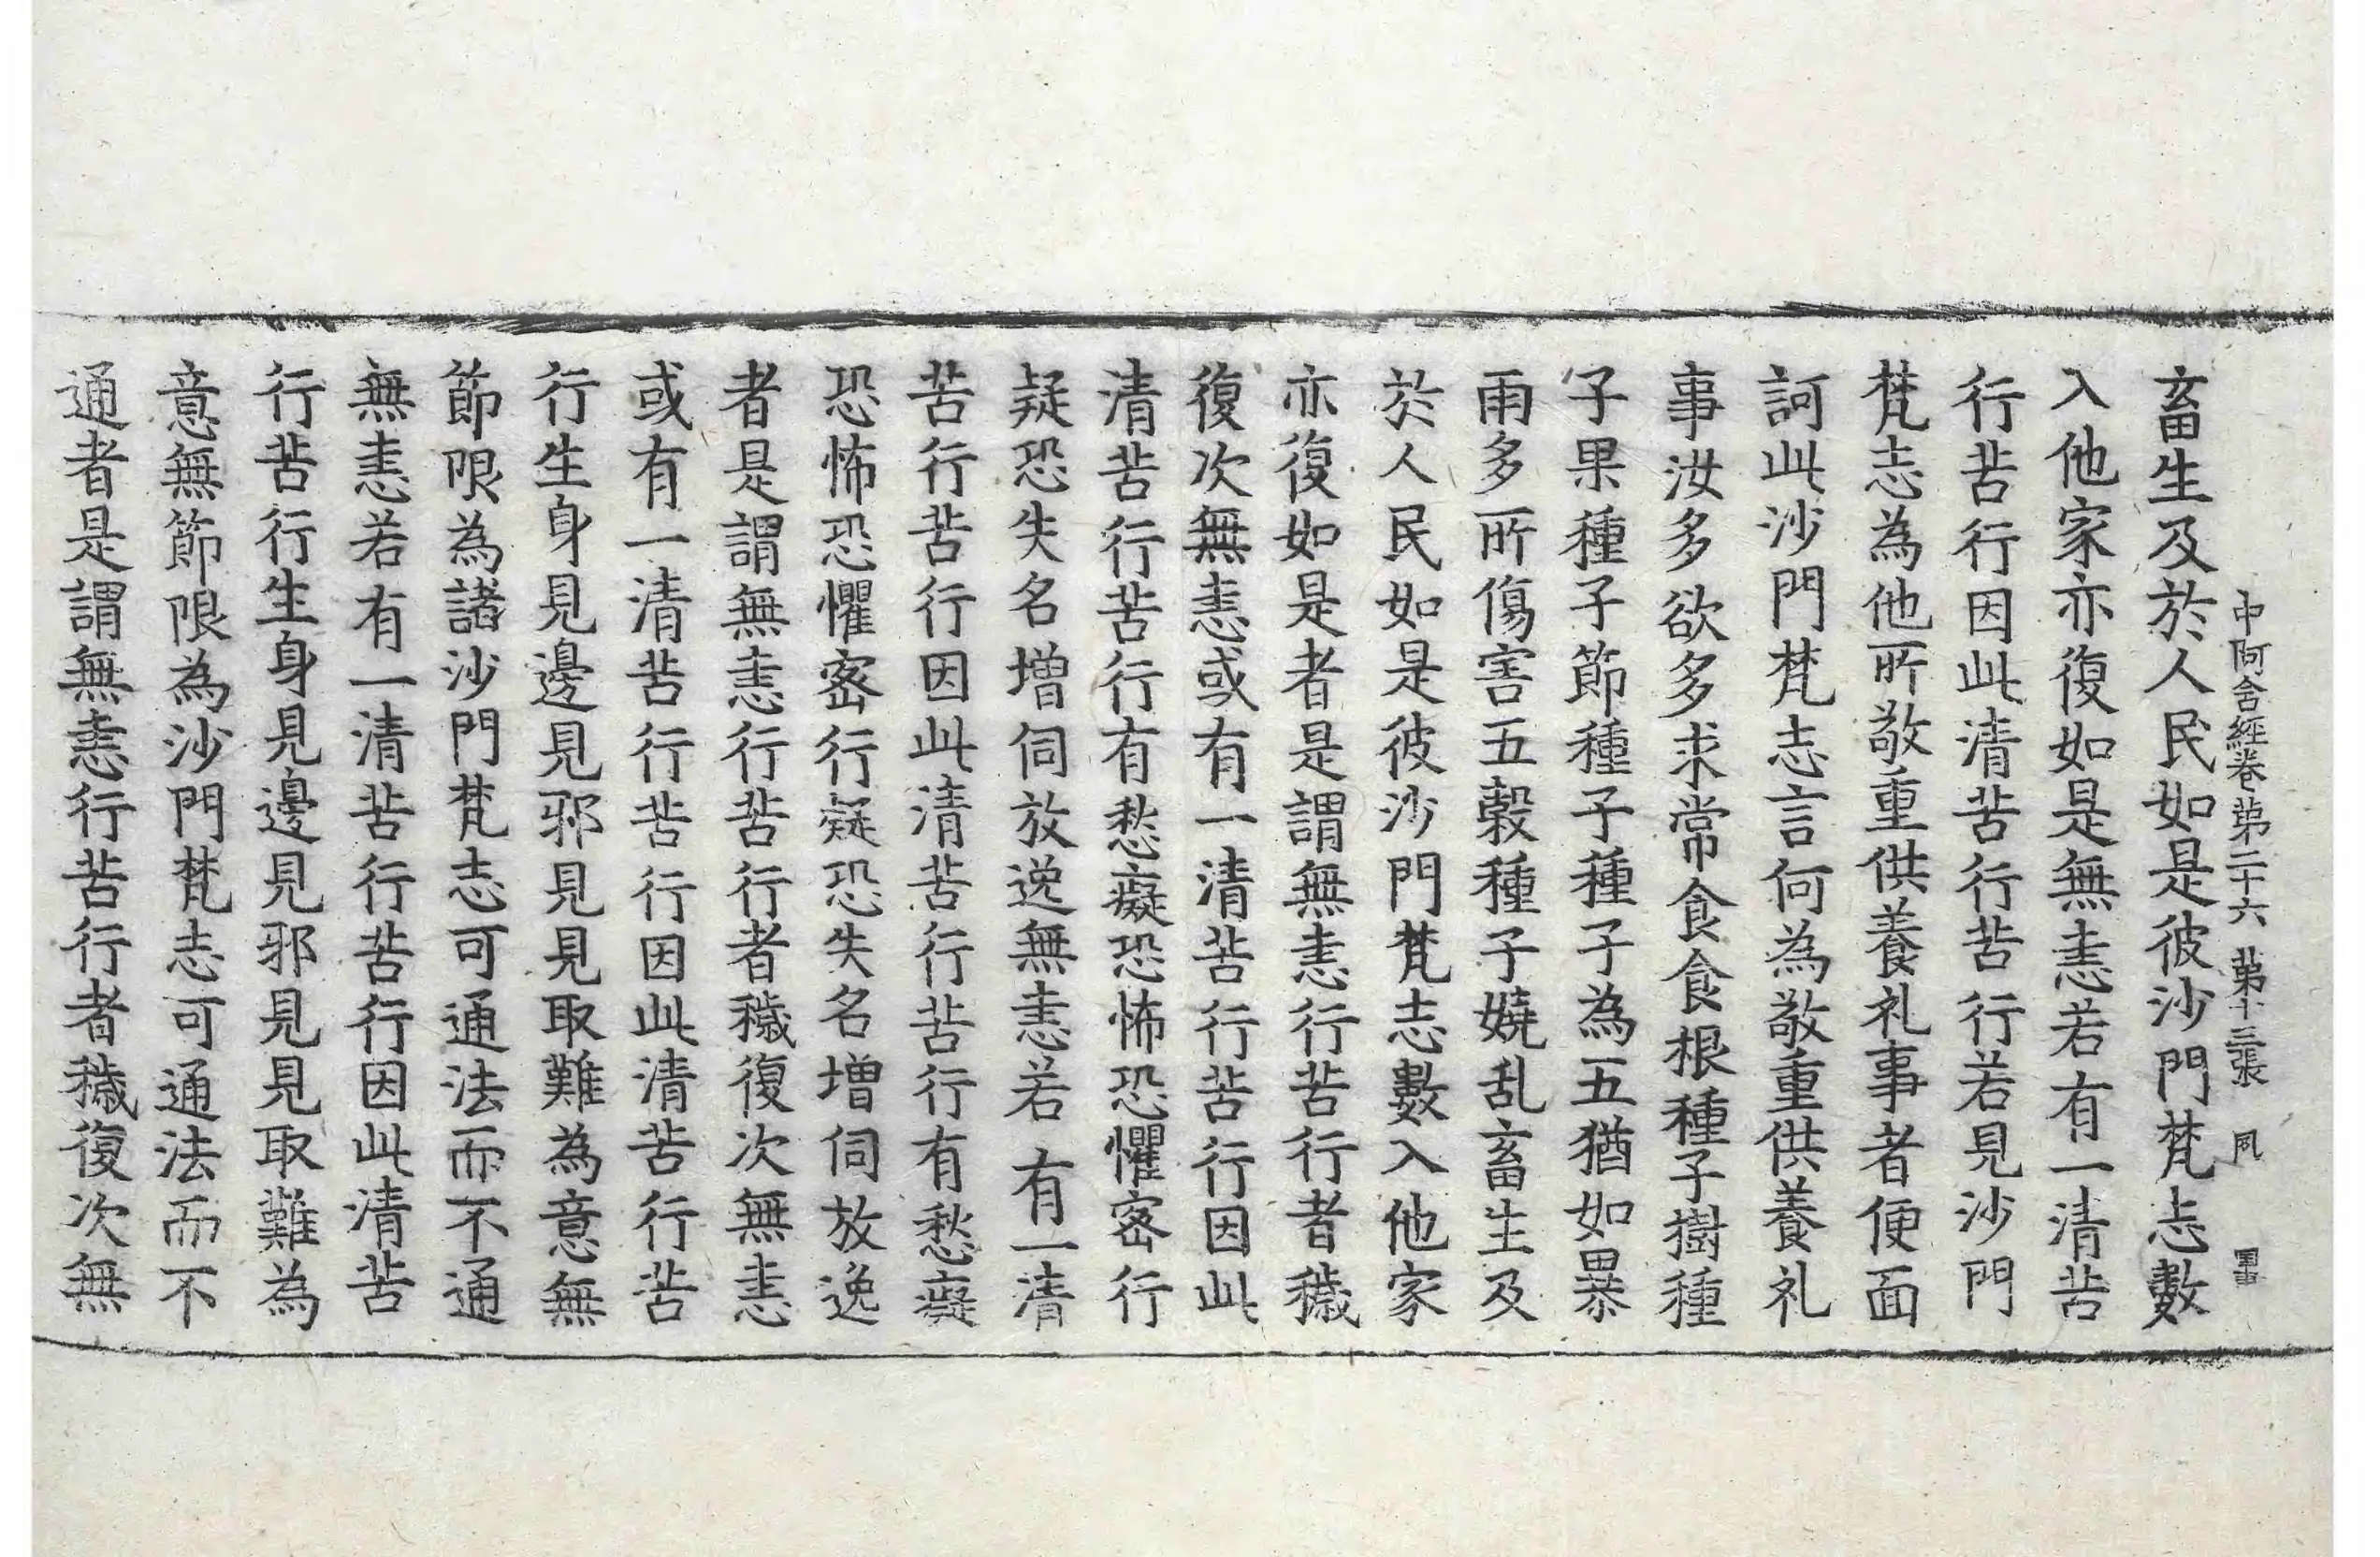 中阿含經卷第二十六 第十三張 風
畜生及於人民如是彼沙門梵志數
入他家亦復如是無恚若有一清苦
行苦行因此清苦行苦行若見沙門
梵志為他所敬重供養礼事者便面
訶此沙門梵志言何為敬重供養礼
事汝多欲多求常食食根種子樹種
子果種子節種子種子為五猶如暴
雨多所傷害五穀種子嬈乱畜生及
於人民如是彼沙門梵志數入他家
亦復如是者是謂無恚行苦行者穢
復次無恚或有一清苦行苦行因此
清苦行苦行有愁癡恐怖恐懼密行
疑恐失名增伺放逸無恚若有一清
苦行苦行因此清苦行苦行有愁癡
恐怖恐懼密行疑恐失名增伺放逸
者是謂無恚行苦行者穢復次無恚
或有一清苦行苦行因此清苦行苦
行生身見邊見邪見見取難為意無
節限為諸沙門梵志可通法而不通
無恚若有一清苦行苦行因此清苦
行苦行生身見邊見邪見見取難為
意無節限為沙門梵志可通法而不
通者是謂無恚行苦行者穢復次無